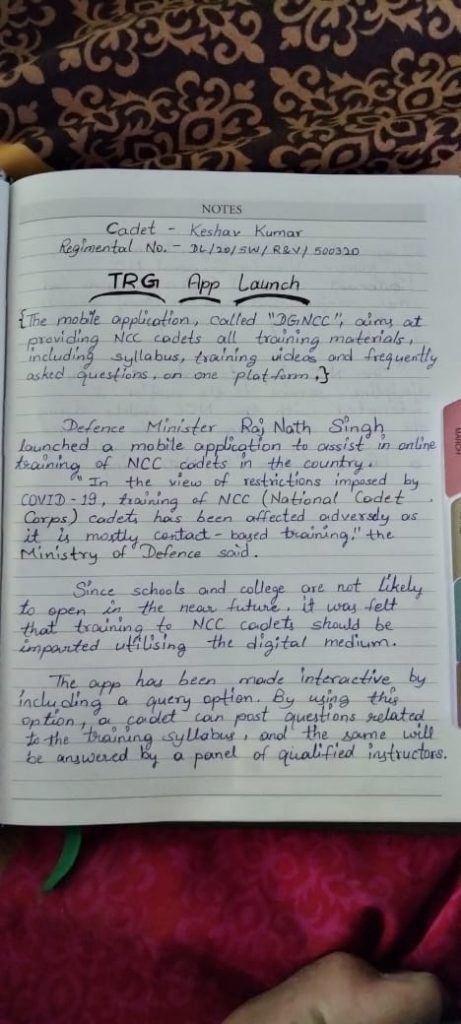 NOTES
Cadet - Keshav Kumar
Regimental No. - DL/20/SW/R&V/500320
TRG App Launch
{The mobile application, called "DGNCC", aims at
providing NCC cadets all training materials,
including syllabus, training videos and frequently
asked questions, on one platform.}
Defence Minister Raj Nath Singh
launched a mobile application to assist in online
training of NCC cadets in the country.
"In the view of restrictions imposed by
COVID-19, training of NCC (National Cadet
Corps) cadets has been affected adversely as
it is mostly contact-based training," the
Ministry of Defence said.
Since schools and college are not likely
to open in the near future, it was felt
that training to NCC cadets should be
imparted utilising the digital medium.
The app has been made interactive by
including a query option. By using this
option, a cadet can post questions related
to the training syllabus, and the same will
be answered by a panel of qualified instructors.
MARCH